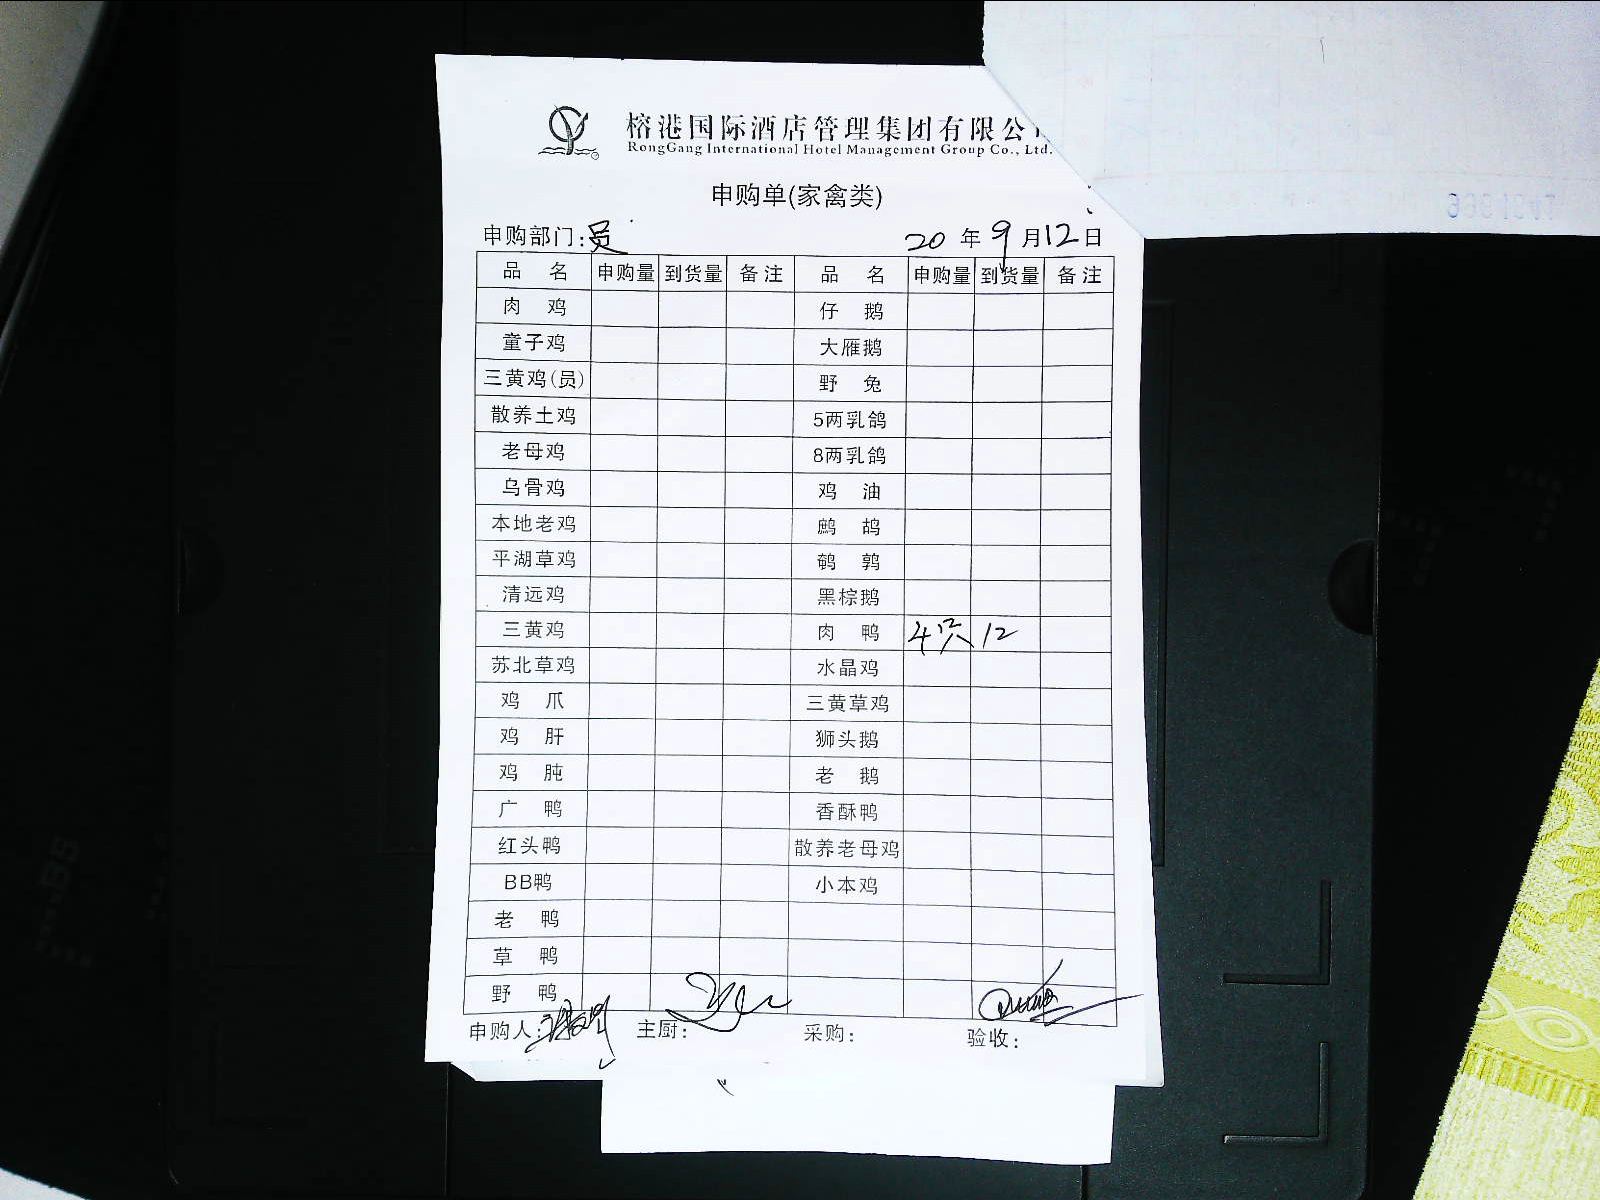 榕港国际酒店管理集团有限公
RongGang International Hotel Management Group Co., Ltd.
申购单(家禽类)
申购部门:员 20 年 9 月 12 日
品 名 申购量 到货量 备注 品 名 申购量 到货量 备注
肉 鸡 仔 鹅
童子鸡 大雁鹅
三黄鸡(员) 野 兔
散养土鸡 5两乳鸽
老母鸡 8两乳鸽
乌骨鸡 鸡 油
本地老鸡 鹧 鸪
平湖草鸡 鹌 鹑
清远鸡 黑棕鹅
三黄鸡 肉 鸭 4只 12
苏北草鸡 水晶鸡
鸡 爪 三黄草鸡
鸡 肝 狮头鹅
鸡 肫 老 鹅
广 鸭 香酥鸭
红头鸭 散养老母鸡
BB鸭 小本鸡
老 鸭
草 鸭
野 鸭
申购人: 主厨: 采购: 验收: